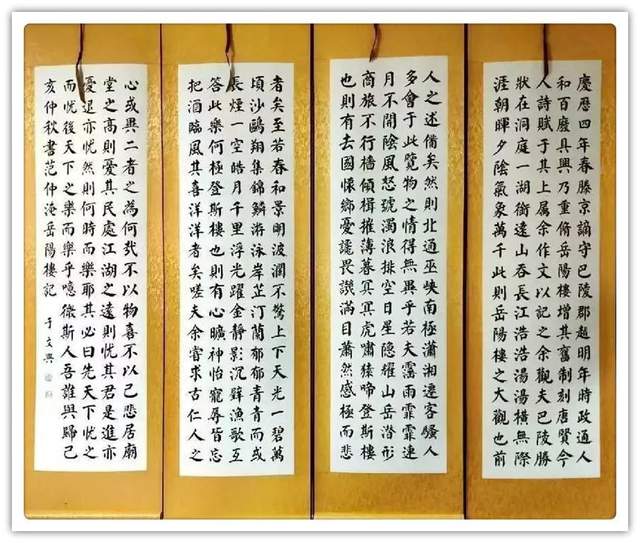 慶曆四年春滕京謫守巴陵郡越明年時政通人
和百廢具興乃重脩岳陽樓增其舊制刻唐賢今
人詩賦于其上属余作文以記之余觀夫巴陵勝
狀在洞庭一湖銜遠山吞長江浩浩湯湯橫無際
涯朝暉夕陰氣象萬千此則岳陽樓之大觀也前
人之述備矣然則北通巫峽南極瀟湘遷客騷人
多會于此覽物之情得無異乎若夫霪雨霏霏連
月不開陰風怒號濁浪排空日星隱耀山岳潛形
商旅不行檣傾楫摧薄暮冥冥虎嘯猿啼登斯樓
也則有去國懷鄉憂讒畏譏滿目蕭然感極而悲
者矣至若春和景明波瀾不驚上下天光一碧萬
頃沙鷗翔集錦鱗游泳岸芷汀蘭郁郁青青而或
長煙一空皓月千里浮光躍金靜影沉璧漁歌互
答此樂何極登斯樓也則有心曠神怡寵辱皆忘
把酒臨風其喜洋洋者矣嗟夫余嘗求古仁人之
心或異二者之為何哉不以物喜不以己悲居廟
堂之高則憂其民處江湖之遠則忧其君是進亦
憂退亦忧然則何時而樂耶其必曰先天下忧之
而忧後天下之樂而樂乎噫微斯人吾誰與歸己
亥仲秋書范仲淹岳陽樓記
于文興